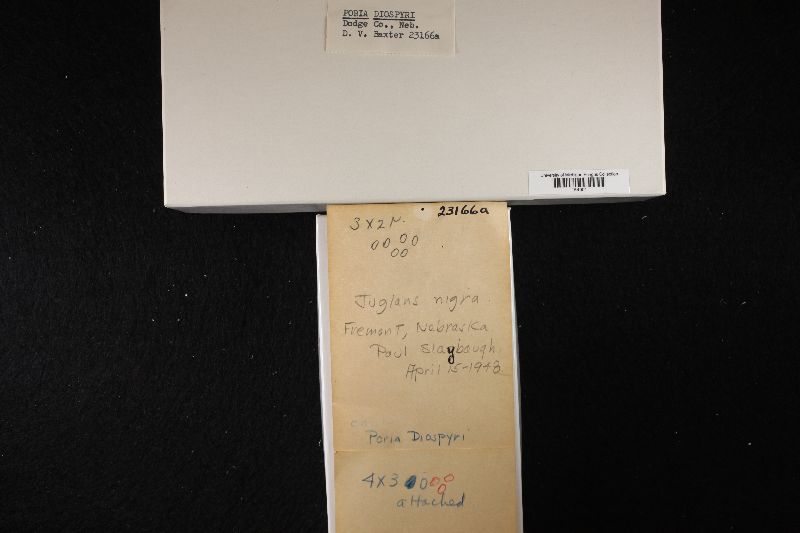 PORIA DIOSPYRI
Dodge Co., Neb.
D. V. Baxter 23166a
University of Michigan Fungus Collection
23166a
3 x 2 µ.
Juglans nigra
Fremont, Nebraska
Paul Slagbaugh.
April 15-1948
Poria Diospyri
4 x 3
attached